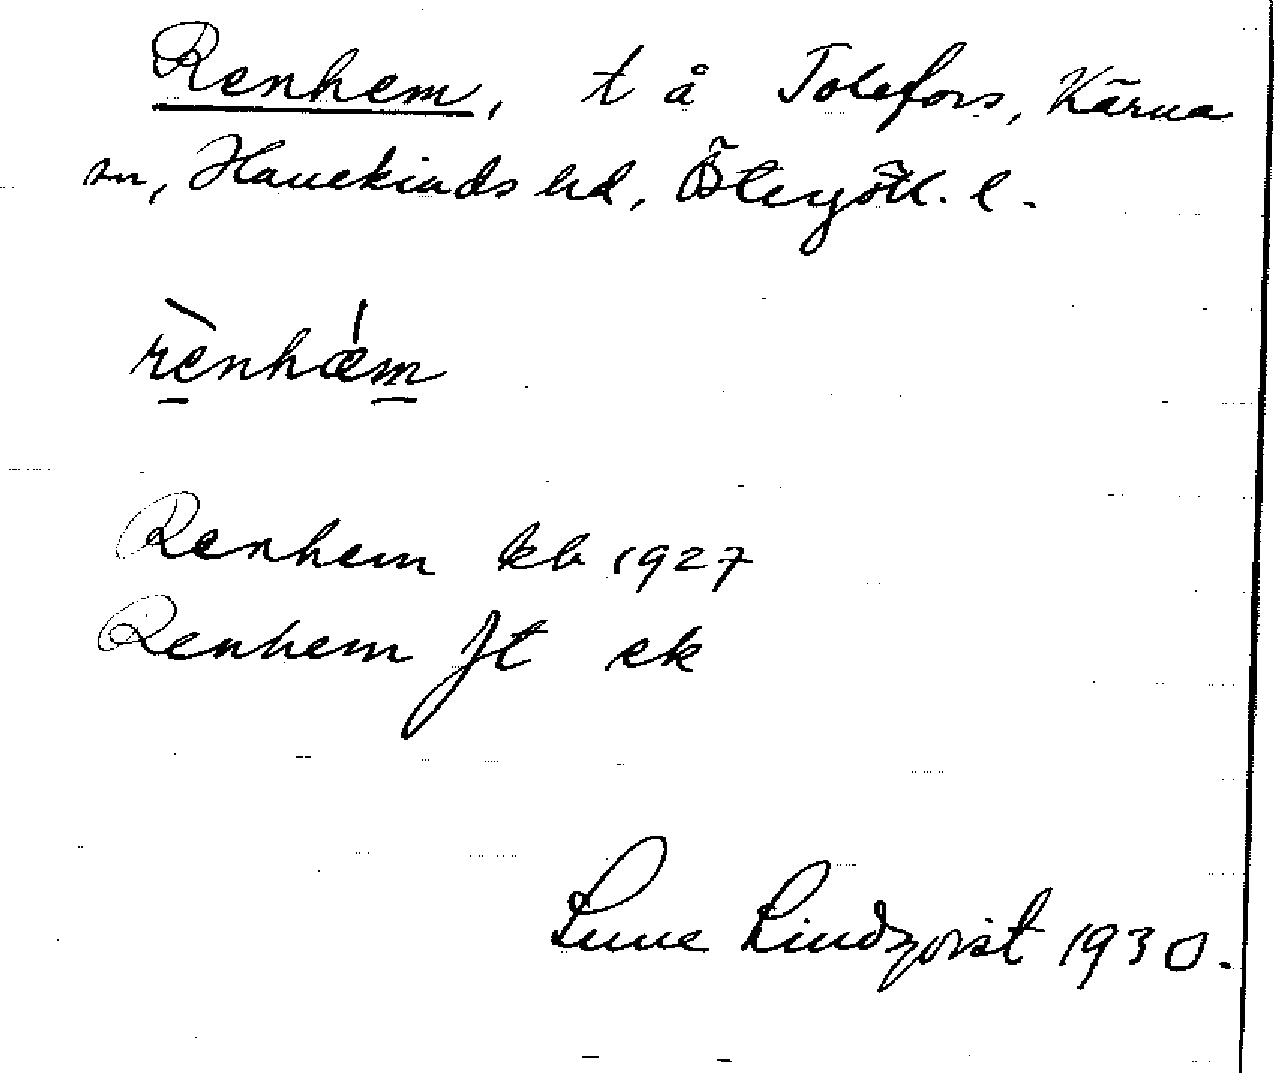 Renhem, t å Tolefors, Kärna
sn, Hanekinds hd, Östergötl. l.
rènhǽm
Renhem kb 1927
Renhem Jt ek
Sune Lindqvist 1930.